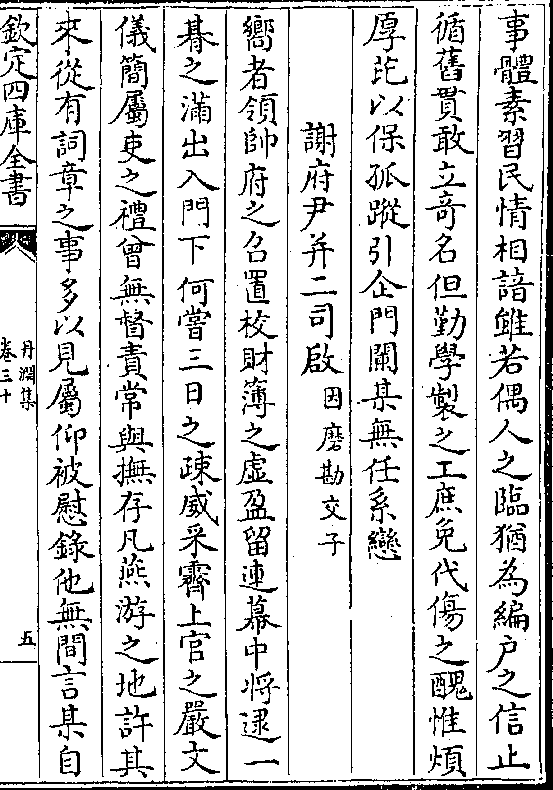 事體素習民情相諳雖若偶人之臨猶為編户之信止
循舊貫敢立竒名但勤學製之工庶免代傷之醜惟煩
厚芘以保孤蹤引企門闌某無任系戀
謝府尹并二司啟因磨勘交子
嚮者領帥府之召置校財簿之虚盈留連幕中將逮一
朞之滿出入門下何嘗三日之疎威采霽上官之嚴文
儀簡屬吏之禮曾無督責常與撫存凡燕游之地許其
來從有詞章之事多以見屬仰被慰錄他無間言某自
欽定四庫全書
丹淵集
卷三十
五